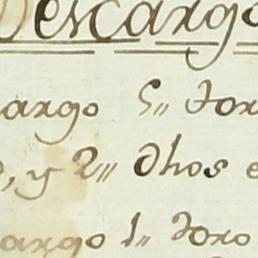 Descargo
argo 5,, tor
, y 2,,, dhos e
argo 1,, toro